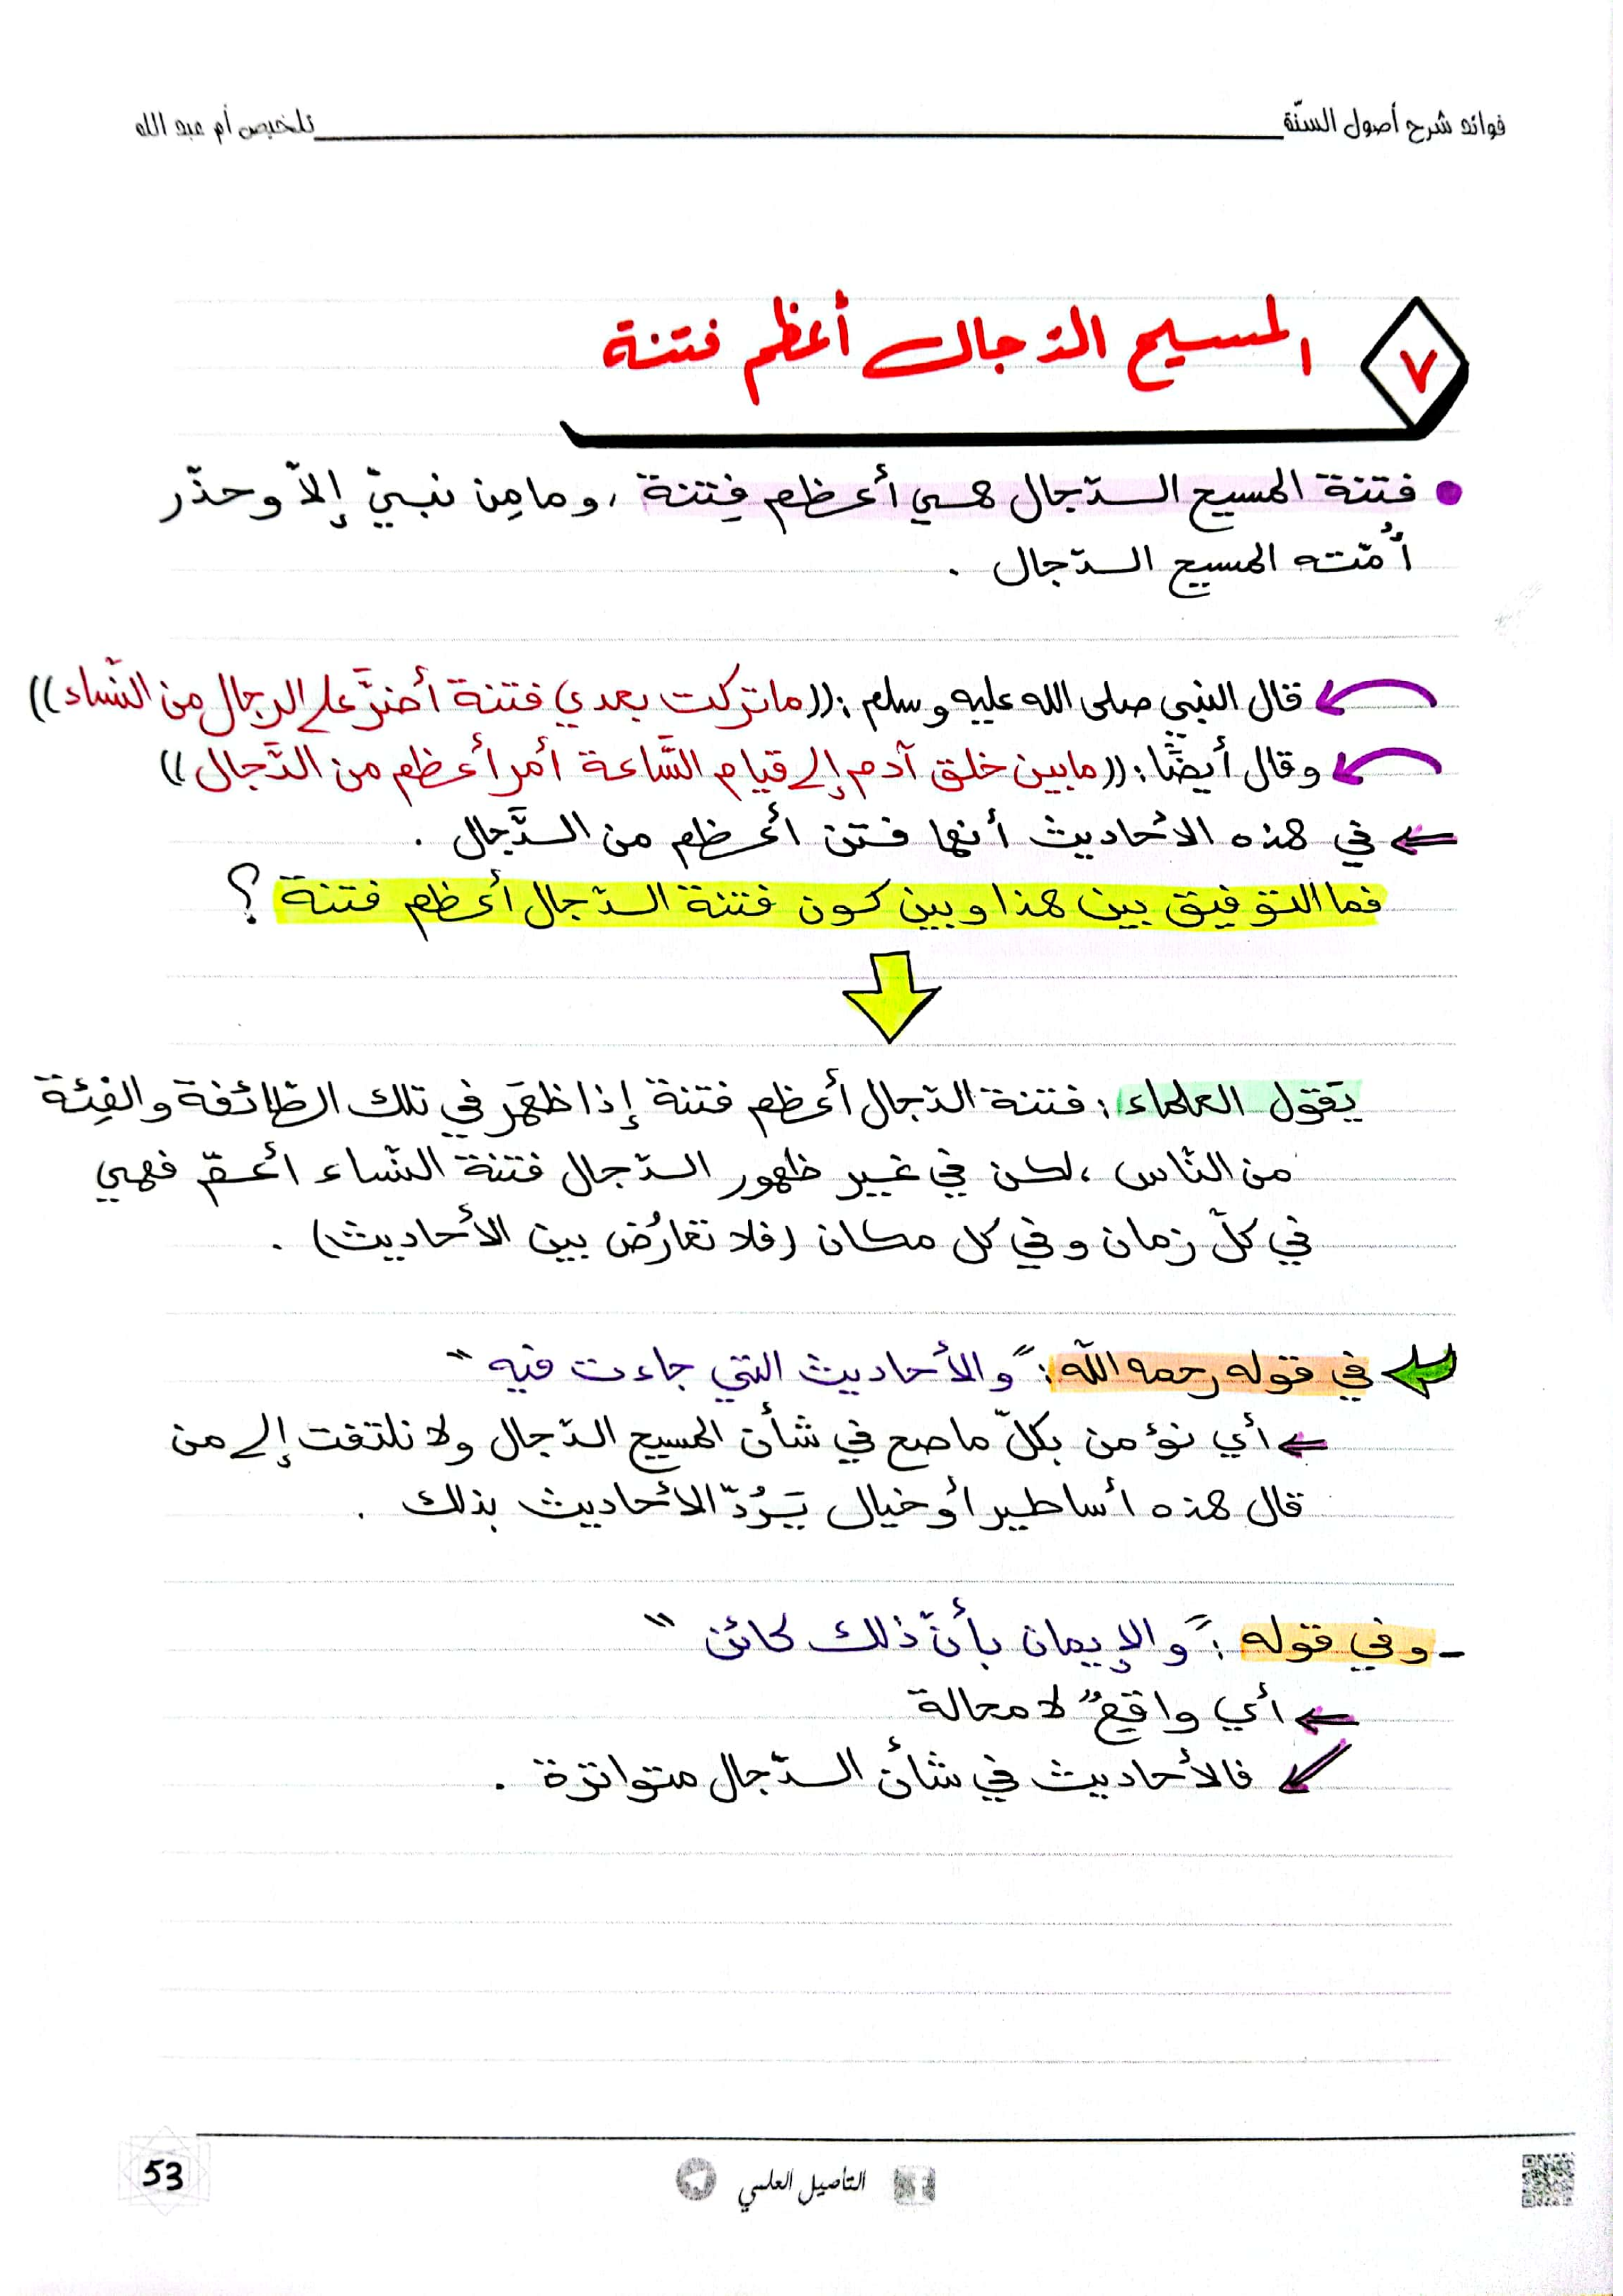 فوائد شرح أصول السنّة
تلخيص أم عبد الله
٧
المسيح الدّجال أعظم فتنة
فتنة المسيح الدّجال هي أعظم فِتنة ، وما مِن نبيّ إلاّ وحذّر
أُمّته المسيح الدّجال .
قال النبي صلى الله عليه وسلم : ((ما تركت بعدي فتنة أضرَّ على الرجال من النّساء))
وقال أيضًا : ((ما بين خلق آدم إلى قيام السَّاعة أمر أعظم من الدَّجال))
في هذه الأحاديث أنها فتن أعظم من الدَّجال .
فما التوفيق بين هذا وبين كون فتنة الدّجال أعظم فتنة ؟
يقول العلماء : فتنة الدّجال أعظم فتنة إذا ظهَر في تلك الطّائفة والفِئة
من النّاس ، لكن في غير ظهور الدّجال فتنة النّساء أعمّ فهي
في كلّ زمان وفي كل مكان (فلا تعارُض بين الأحاديث) .
في قوله رحمه اللّه : " والأحاديث التي جاءت فيه "
أي نؤمن بكلّ ما صح في شأن المسيح الدّجال ولا نلتفت إلى من
قال هذه أساطير أو خيال يَرُدّ الأحاديث بذلك .
- وفي قوله : " والإيمان بأنّ ذلك كائن "
أي واقعٌ لا محالة
فالأحاديث في شأن الدّجال متواترة .
التأصيل العلمي
53